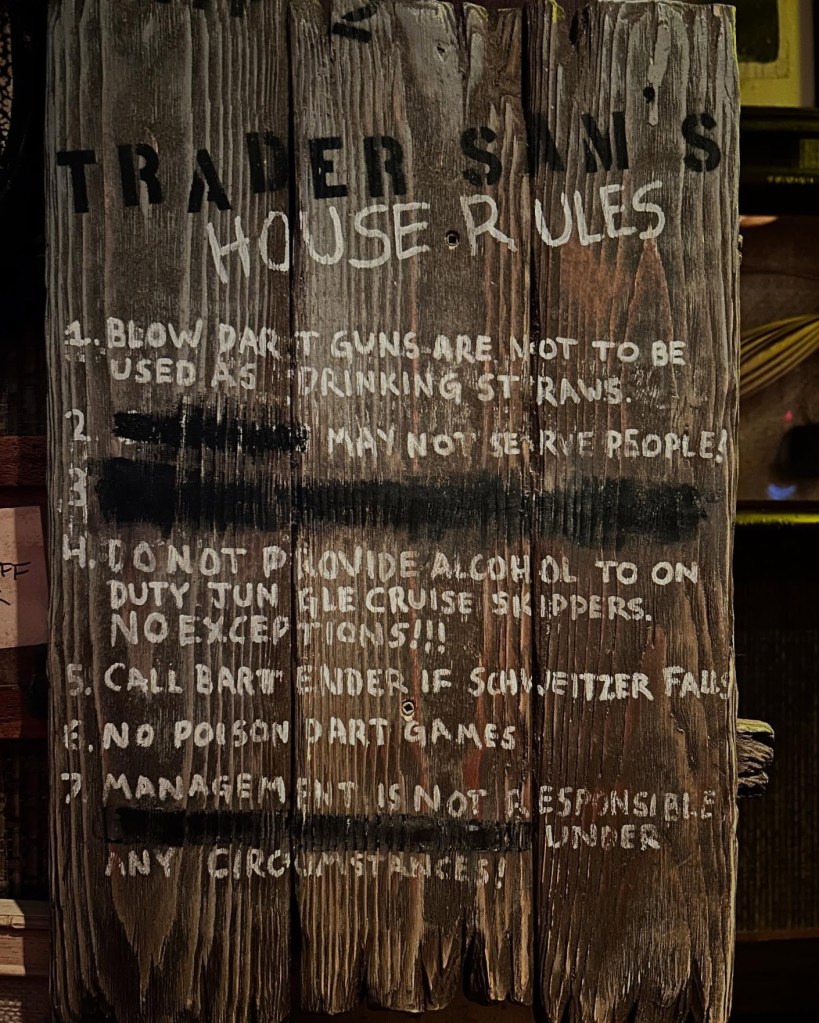 TRADER SAM'S
HOUSE RULES
1. BLOW DART GUNS ARE NOT TO BE
USED AS DRINKING STRAWS.
2 MAY NOT SERVE PEOPLE!
3
4. DO NOT PROVIDE ALCOHOL TO ON
DUTY JUNGLE CRUISE SKIPPERS.
NO EXCEPTIONS!!!
5. CALL BARTENDER IF SCHWEITZER FALLS
6. NO POISON DART GAMES
7. MANAGEMENT IS NOT RESPONSIBLE
UNDER
ANY CIRCUMSTANCES!